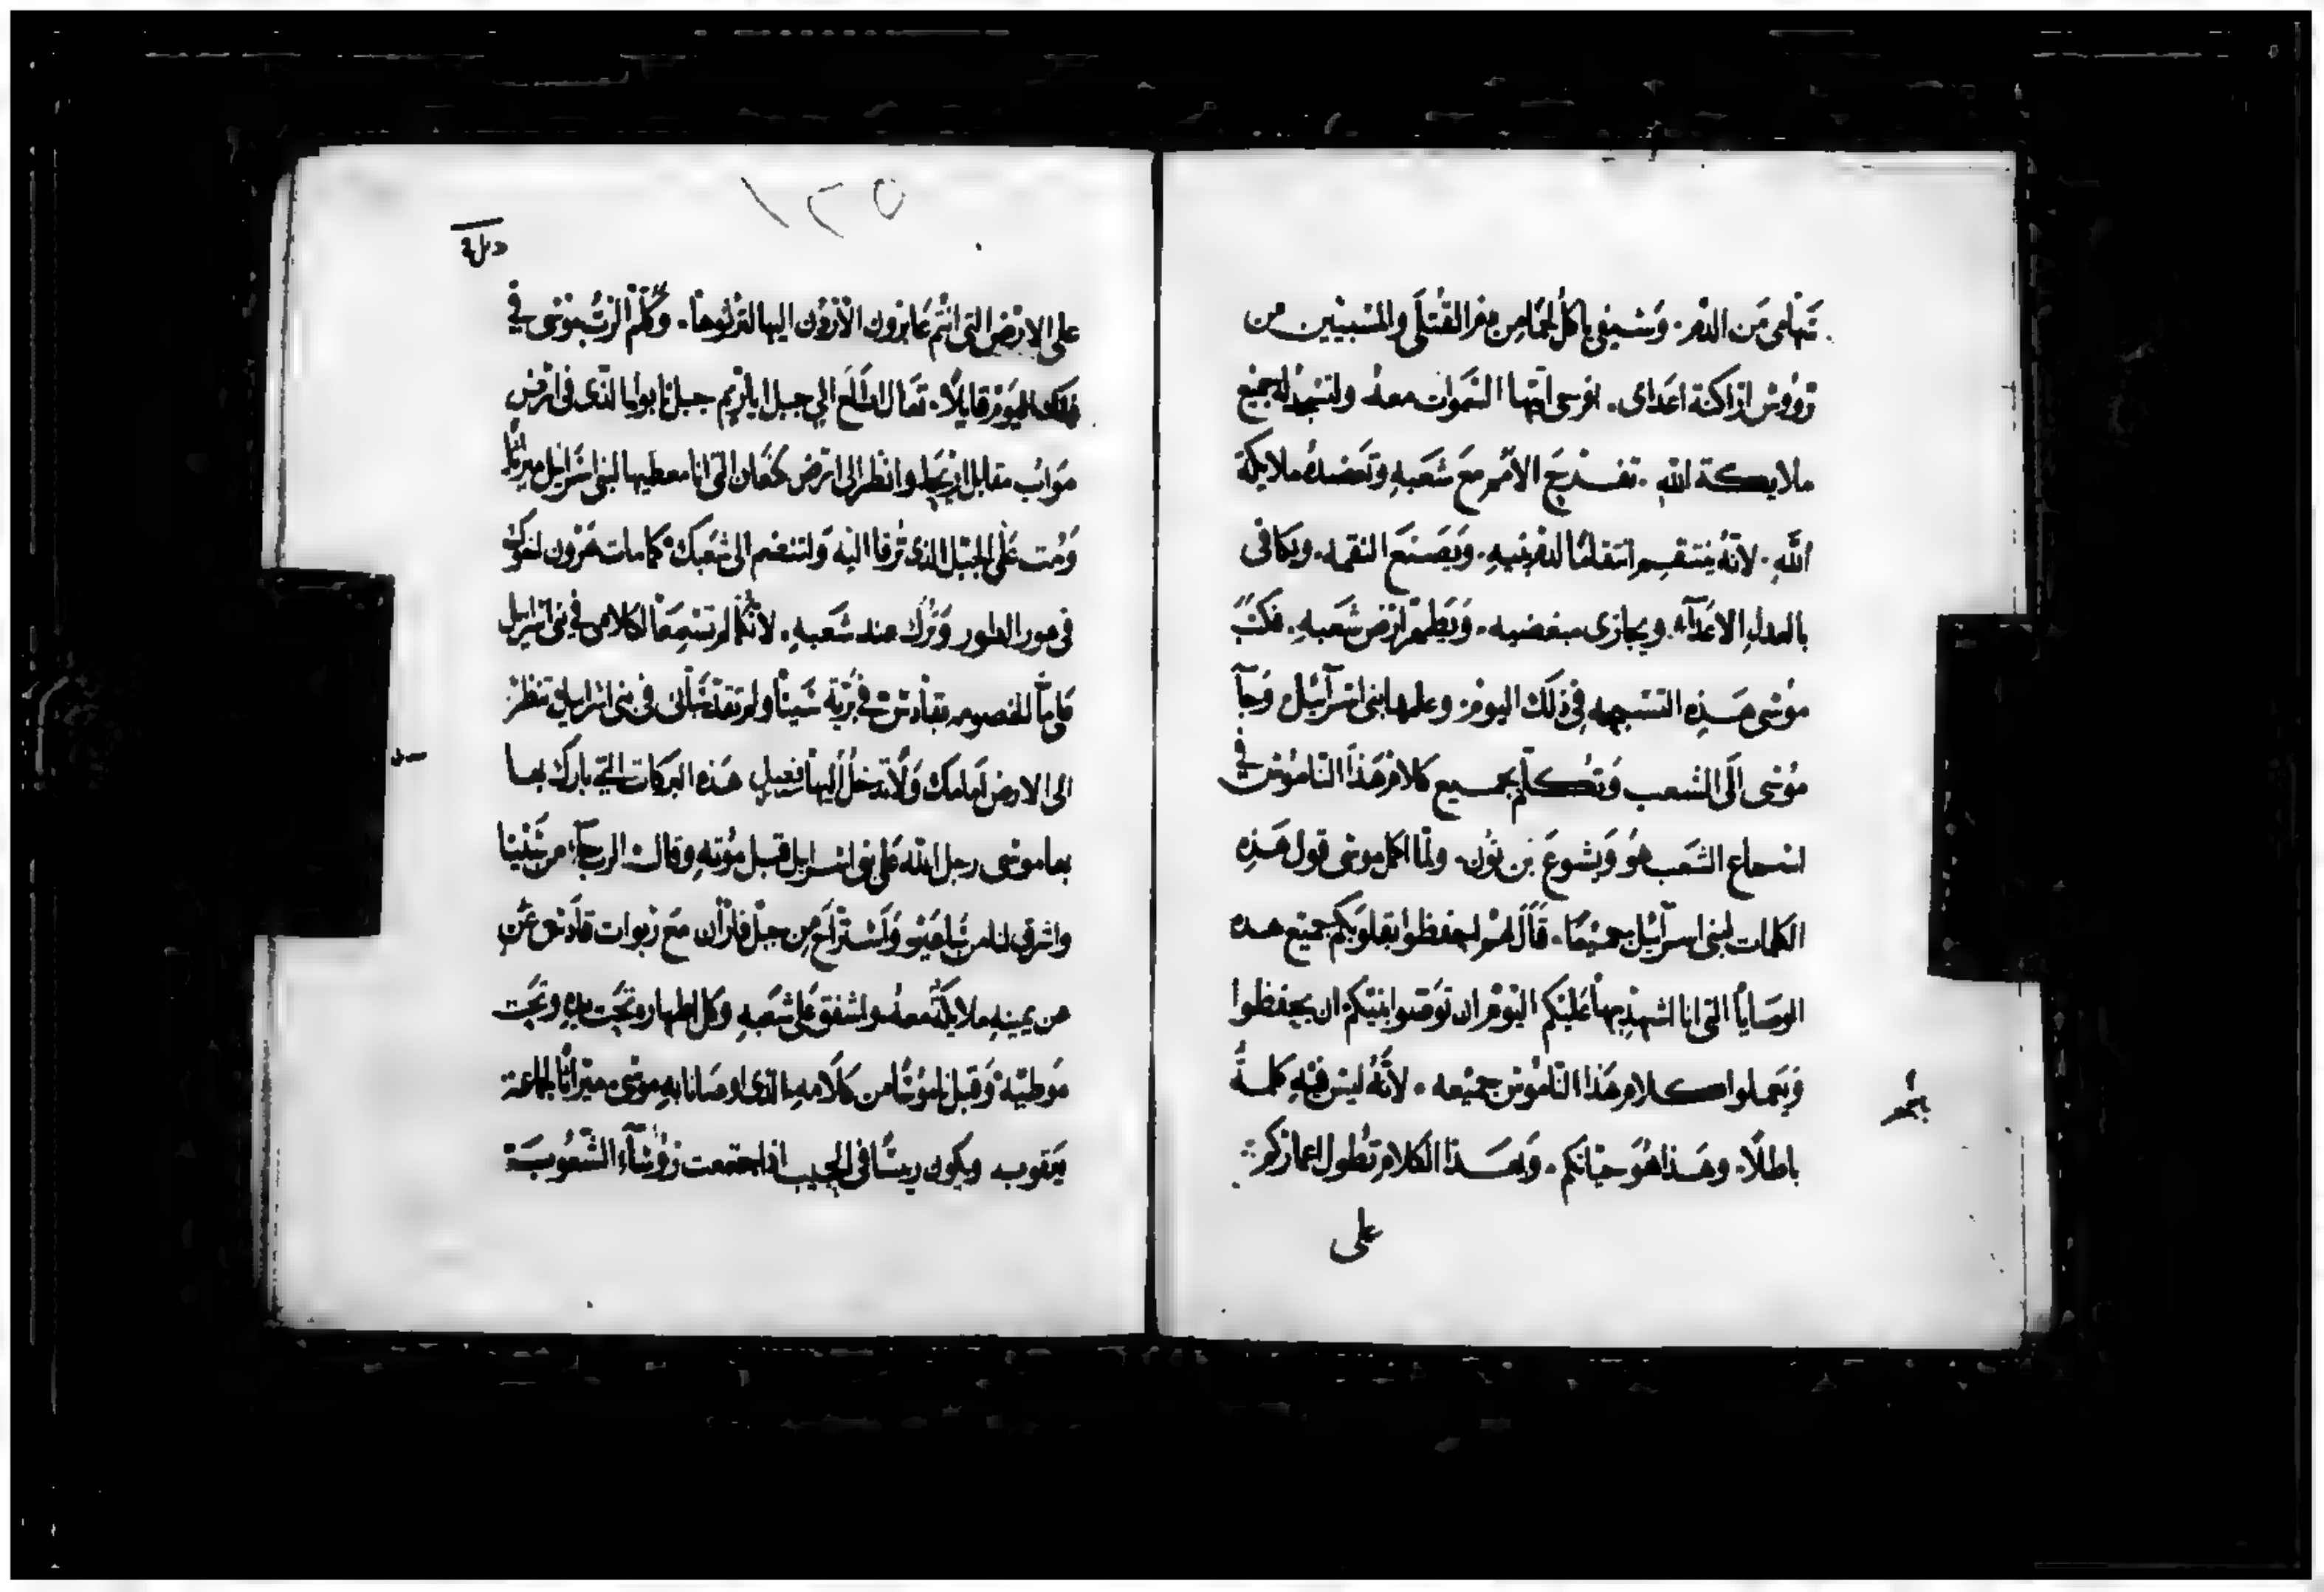 سهامى من الدم. وسيفى ياكل لحما من دم القتلى والمسبيين من
رووس اراكنة اعداى. افرحى ايتها السموات معه ولتسجد له جميع
ملايكة الله. تفرج الامم مع شعبه وتعضده ملايكة
الله. لانه ينتقم انتقاما لدم بنيه. ويصنع النقمه. ويكافى
بالعدل الاعدآء. ويجازى مبغضيه. ويطهر ارض شعبه. فكتب
موسى هذه التسبحه فى ذلك اليوم. وعلمها لبنى اسرآئيل وجآ
موسى الى الشعب وتكلم بجميع كلام هذا الناموس فى
استماع الشعب هو ويشوع بن نون. ولما اكمل موسى قول هذه
الكلمات لبنى اسرآئيل جميعا. قال لهم احفظوا بقلوبكم جميع هده
الوصايا التى انا اشهد بها عليكم اليوم ان توصوا بنيكم ان يحفظوا
ويعملوا كلام هذا الناموس جميعه. لانه ليس فيه كلمة
باطلا. وهذا هو حياتكم. وبهذا الكلام تطول اعماركم
على
١٢٥
على الارض التى انتم عابرون الاردن اليها لترثوها. وكلم الرب موسى فى
ذلك اليوم قايلا. تعال اطلع الى جبل اباريم جبل نابوا الذى فى ارض
مواب مقابل اريحا وانظر الى ارض كنعان التى انا معطيها لبنى اسرايل ميراثا
ومت على الجبل الذى ترقا اليه ولتنضم الى شعبك كما مات هرون اخوك
فى هور الطور وترك عند شعبه. لانكما لم تسمعا لكلامى فى بنى اسرايل
على ما الخصومه بقادس فى برية سينا ولم تقدسانى فى بنى اسرايل تنظر
الى الارض امامك ولا تدخل اليها هذه البركات التى بارك بها
بها موسى رجل الله على بنى اسرايل قبل موته وقال الرب جآ من سينا
واشرق لنا من ساعير واستراح من جبل فاران مع ربوات قادس عن
من يمينه ملايكته معه واشفق على شعبه وكل اطهاره تحت يده وتحت
موطيه وقبل ناموسا من كلامه الذى اوصانا به موسى ميراثا لجماعة
يعقوب ويكون ريسا فى الحبيب اذا اجتمعت روسآء الشعوب